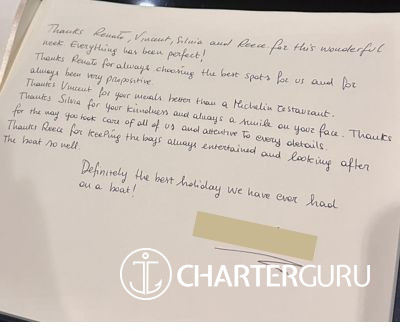 Thanks Renato, Vincent, Silvia and Reece for this wonderful
week Everything has been perfect!
Thanks Renato for always choosing the best spots for us and for
always been very propositive
Thanks Vincent for your meals better than a Michelin restaurant.
Thanks Silvia for your kindness and always a smile on your face. Thanks
for the way you took care of all of us and attentive to every details.
Thanks Reece for keeping the boys always entertained and looking after
The boat so well.
Definitely the best holiday we have ever had
on a boat!
CHARTERGURU